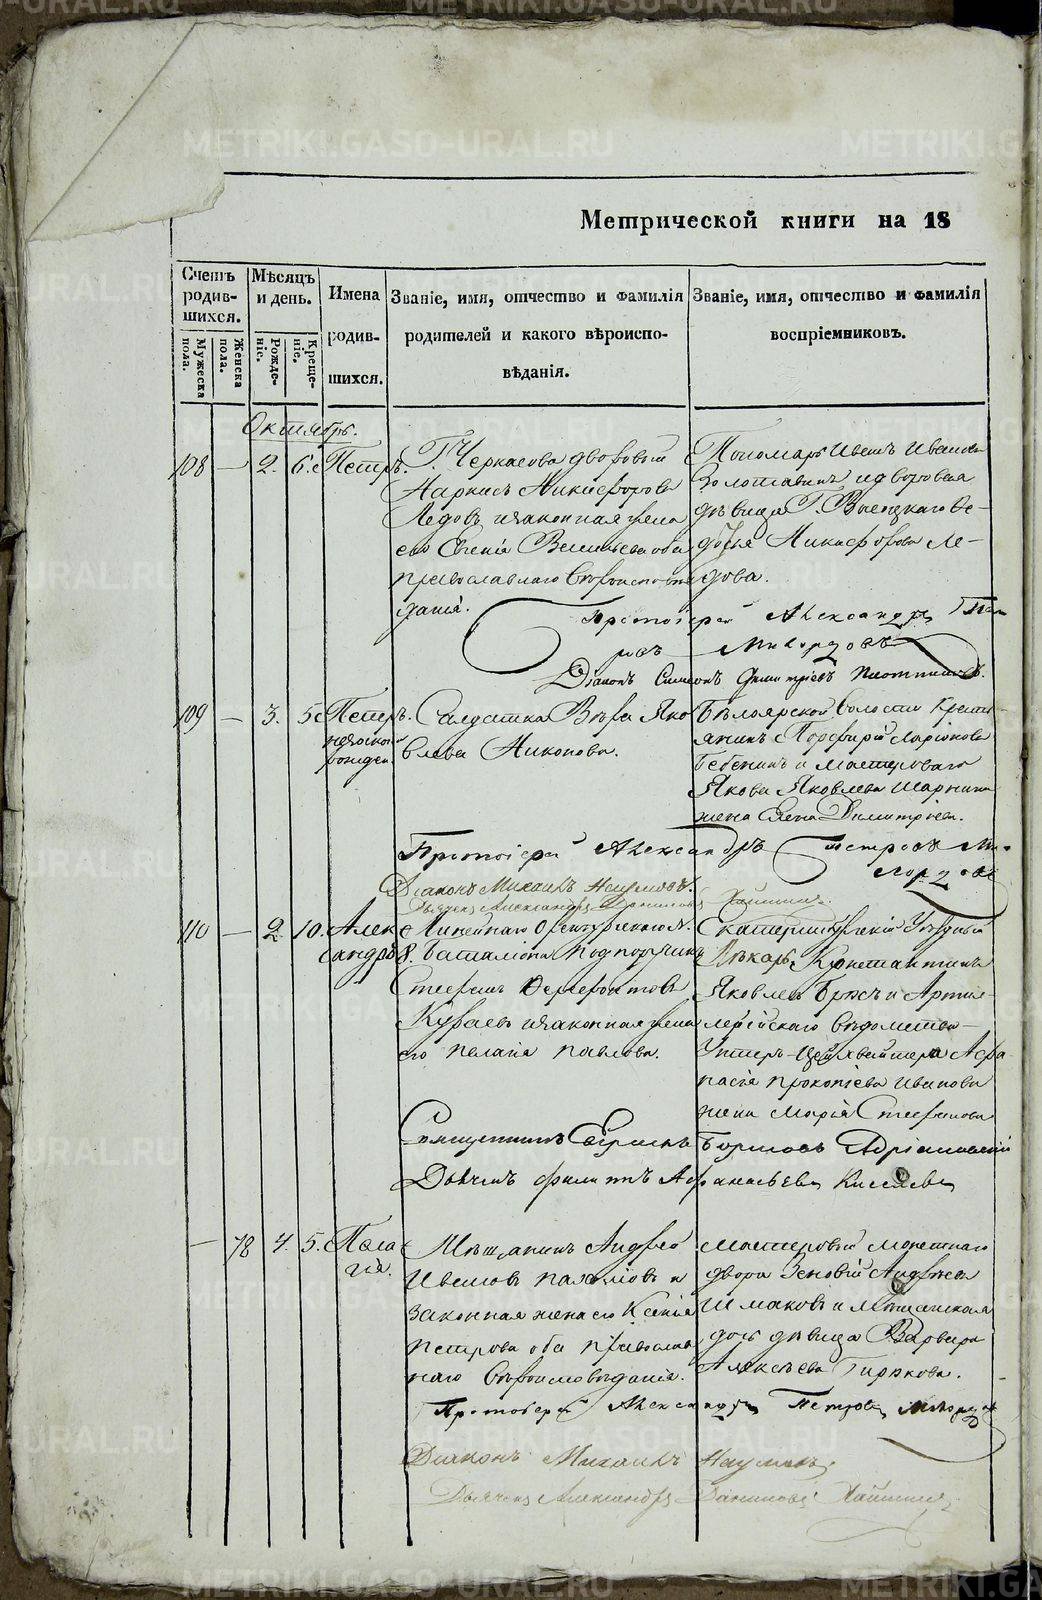 METRIKI.GASO-URAL.RU
Метрической книги на 18
Счетъ родив-шихся.
Мужеска пола.
Женска пола.
Мѣсяцъ и день.
Рожде-ніе.
Креще-ніе.
Имена родив-шихся.
Званіе, имя, отчество и фамилія родителей и какого вѣроиспо-вѣданія.
Званіе, имя, отчество и фамилія воспріемниковъ.
Октябрь.
108 — 2. 6. Петръ.
Г. Черкасова дворовый
Никифоровъ
Ледовъ и законная жена
его Евгенія Васильева оба
православнаго вѣроисповѣ
данія.
Пономарь Иванъ Ивановъ
и дворовая
дѣвица Г.
Никифорова Ле-
дова.
Протоіерей Александръ Пет
ровъ
Діаконъ Симеонъ Димитріевъ Плотниковъ.
109 — 3. 5. Петръ.
незаконно
рожден
Солдатка Вѣра Яко
влева Никонова.
Бѣлоярской волости Крестья
янинъ Порфирій Ларіоновъ
Бебенинъ и Мастероваго
Якова Яковлева
жена Елена Димитріева.
Протоіерей Александръ Петровъ
Діаконъ Михаилъ Наумовъ.
Дьячекъ Александръ
110 — 2. 10. Алек
сандръ
Линейнаго Оренбургскаго №
8. баталіона подпоручикъ
Стефанъ
и законная жена
его Пелагія Павлова.
Екатеринбургскій Уѣздный
Лѣкарь Константинъ
Яковлевъ и Артил-
лерійскаго вѣдомства
Унтеръ-Цейхвейтера Афа
насія Прокопіева Иванова
жена Марія Стефанова
Священникъ Борисовъ Адріановскій
Дьячекъ Филиппъ Афанасьевъ Киселевъ
— 78 4. 5. Пела
гія.
Мѣщанинъ Андрей
Ивановъ Пахомовъ и
законная жена его Ксенія
Петрова оба православ
наго вѣроисповѣданія.
Мастеровый монетнаго
двора Зеновій Андреевъ
Шмаковъ и мѣщанская
дочь дѣвица Варвара
Алексѣева
Протоіерей Александръ Петровъ
Діаконъ Михаилъ Наумовъ.
Дьячекъ Александръ